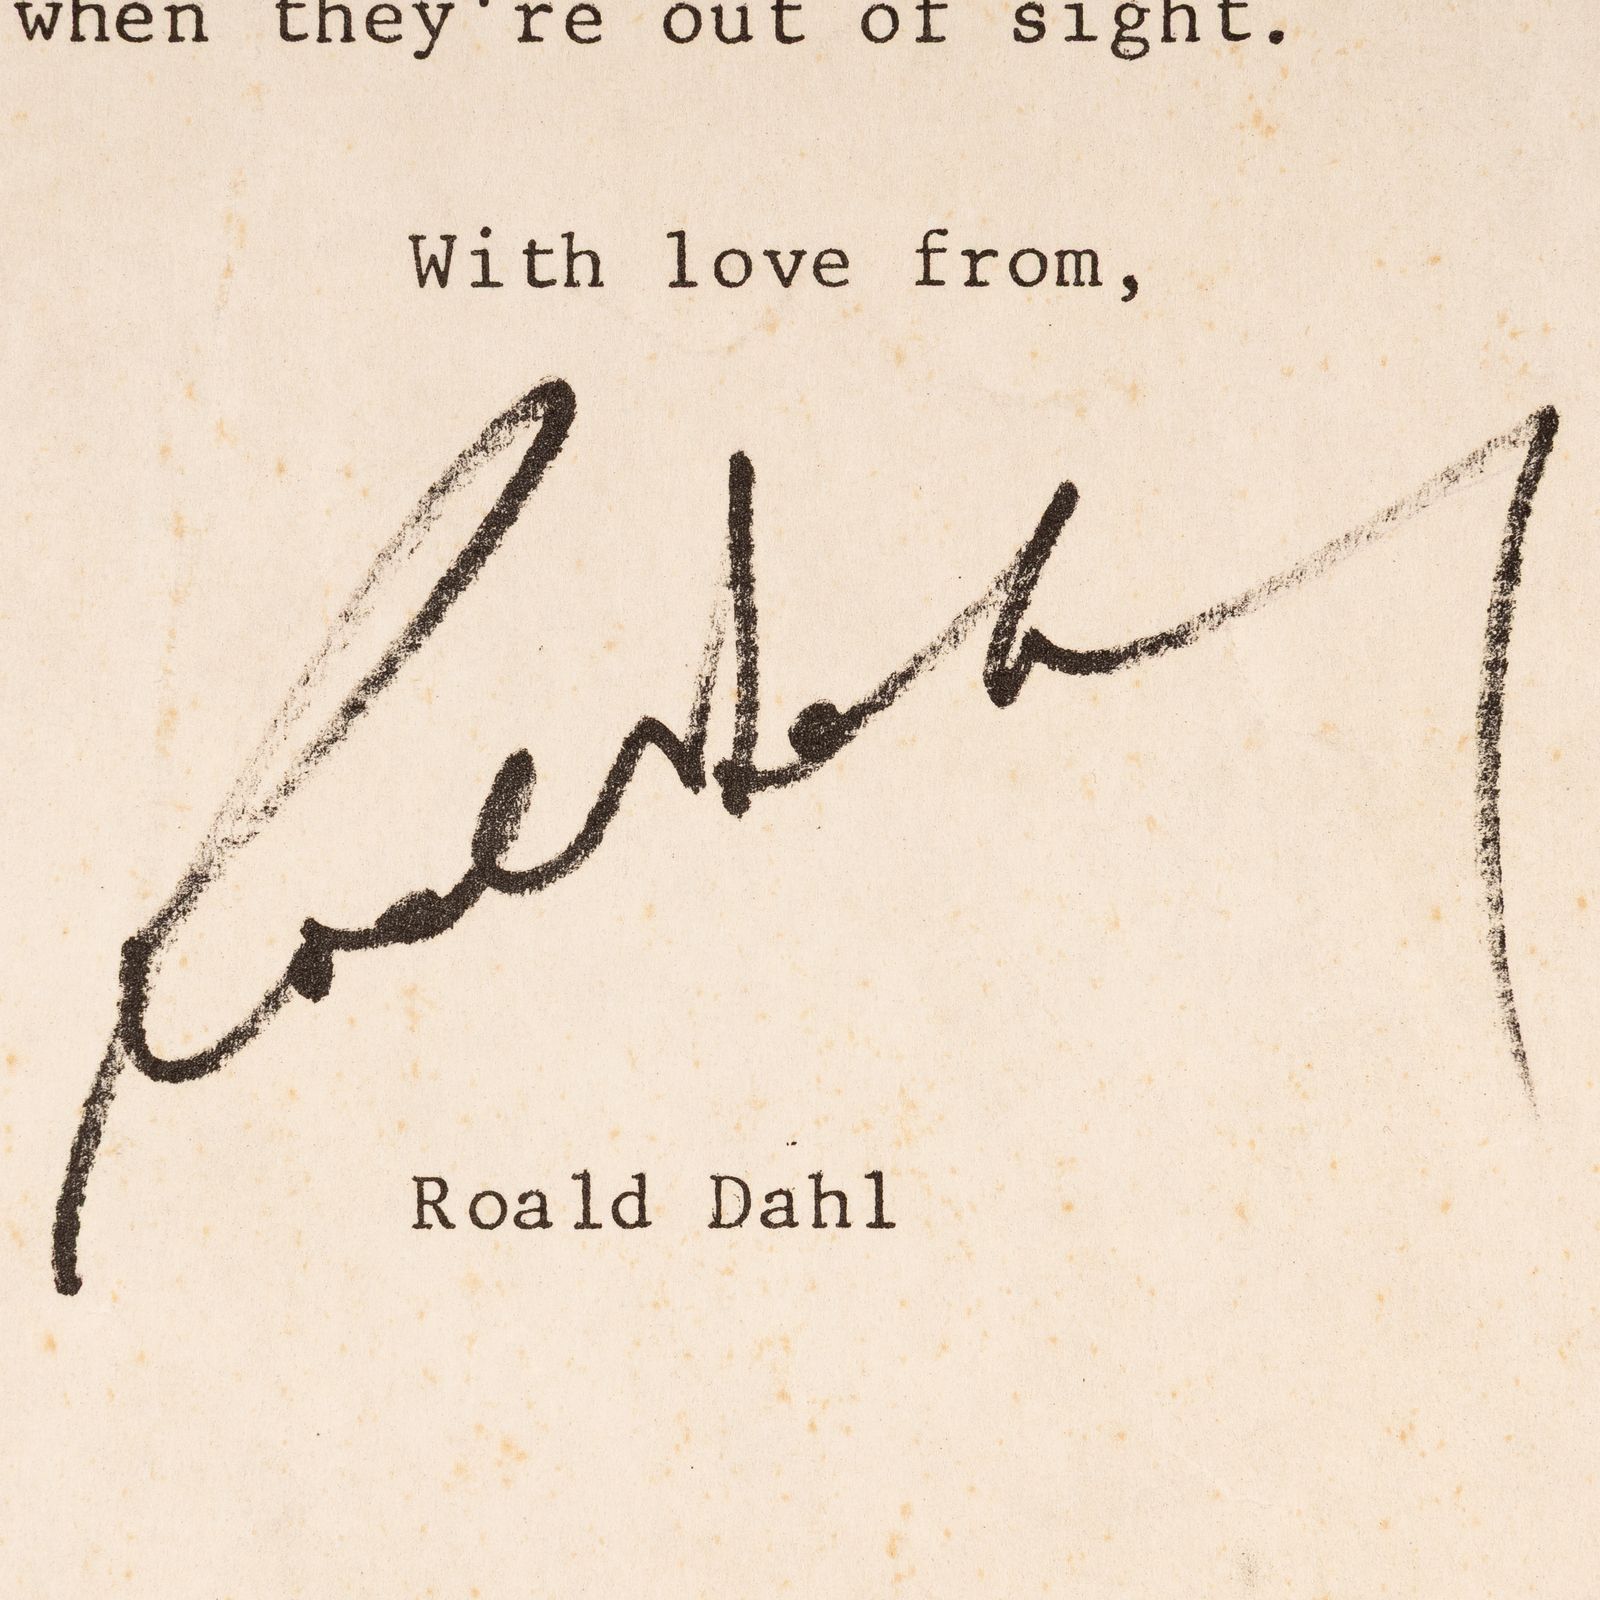 when they're out of sight.
With love from,
Roald Dahl
Roald Dahl